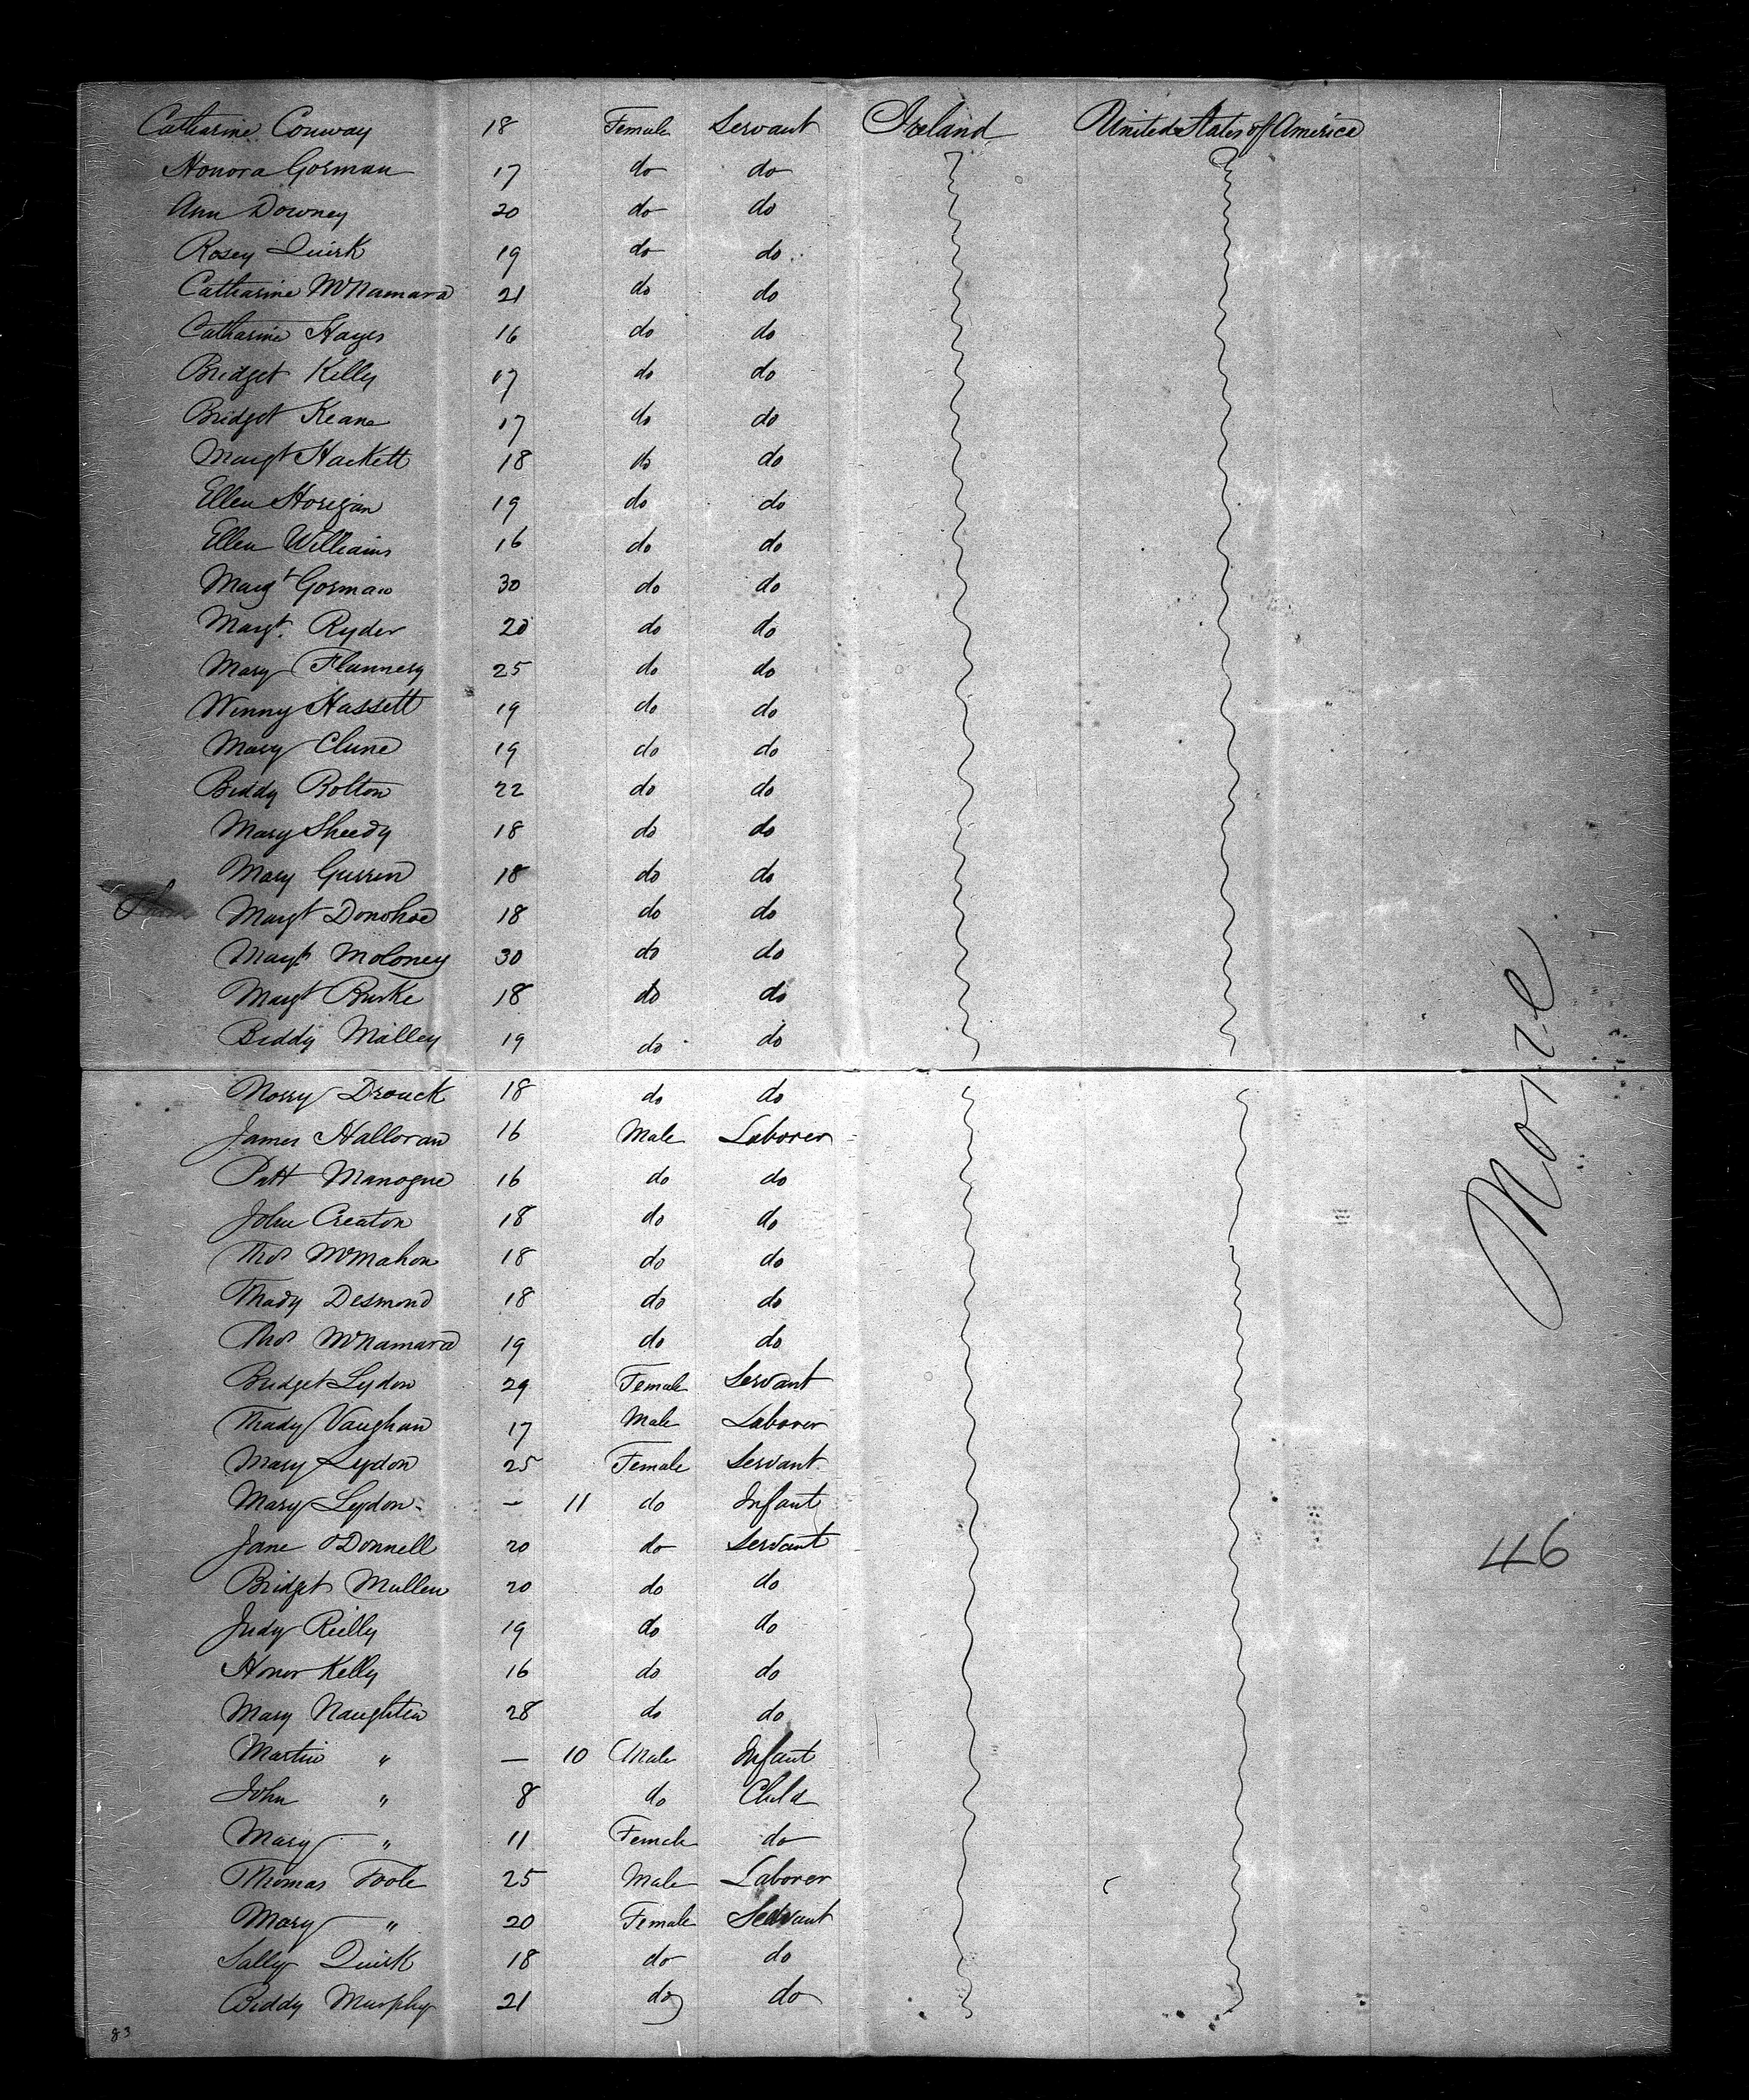 Catharine Conway 18 Female Servant Ireland United States of America
Honora Gorman 17 do do
Ann Downey 20 do do
Rosey Quirk 19 do do
Catharine McNamara 21 do do
Catharine Hayes 16 do do
Bridget Kelly 17 do do
Bridget Keane 17 do do
Margt Hackett 18 do do
Ellen Horigan 19 do do
Ellen Williams 16 do do
Margt Gorman 30 do do
Margt. Ryder 20 do do
Mary Flannery 25 do do
Winny Hassett 19 do do
Mary Clune 19 do do
Biddy Bolton 22 do do
Mary Sheedy 18 do do
Mary Gurrin 18 do do
Margt Donohoe 18 do do
Margt Moloney 30 do do
Margt Burke 18 do do
Biddy Malley 19 do do
Morry Drouck 18 do do
James Halloran 16 Male Laborer
Patt Manogue 16 do do
John Creaton 18 do do
Thos McMahon 18 do do
Thady Desmond 18 do do
Thos McNamara 19 do do
Bridget Lydon 29 Female Servant
Thady Vaughan 17 Male Laborer
Mary Lydon 25 Female Servant
Mary Lydon - 11 do Infant
Jane O'Donnell 20 do Servant
Bridget Mullen 20 do do
Judy Reilly 19 do do
Honor Kelly 16 do do
Mary Naughten 28 do do
Martin " - 10 Male Infant
John " 8 do Child
Mary " 11 Female do
Thomas Foole 25 Male Laborer
Mary " 20 Female Servant
Sally Quirk 18 do do
Biddy Murphy 21 do do
83
46